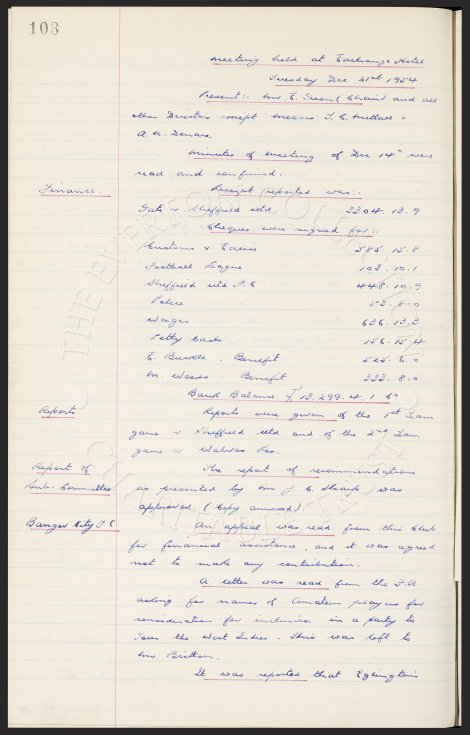 103
Meeting held at Exchange Hotel
Tuesday Dec 21st 1954
Present:- Mr E. Green (Chair) and all
other Directors except Messrs T. C. Nuttall &
A. N. Denaro.
Minutes of meeting of Dec 14th were
read and confirmed.
Finance. Receipt reported was:-
Gate v Sheffield Utd 3304.13.9
Cheques were signed for:-
Customs & Excise 585.15.8
Football League 103.10.1
Sheffield Utd F.C 448.10.9
Police 53.8.0
Wages 636.13.3
Petty Cash 156.15.4
E. Buckle. Benefit 525.6.0
M. Woods Benefit 333.8.0
Bank Balance £13,299.4.1
Reports Reports were given of the 1st Team
game v Sheffield Utd and of the 2nd Team
game v Wolves Res.
Report of The report of recommendations
Sub-Committee as presented by Mr J. C. Sharp was
approved. (Copy annexed)
Bangor City F.C An appeal was read from this Club
for financial assistance, and it was agreed
not to make any contribution.
A letter was read from the F.A
asking for names of Amateur players for
consideration for inclusion in a party to
Tour the West Indies. This was left to
Mr Britton.
It was reported that Eglington's
THE EVERTON COLLECTION